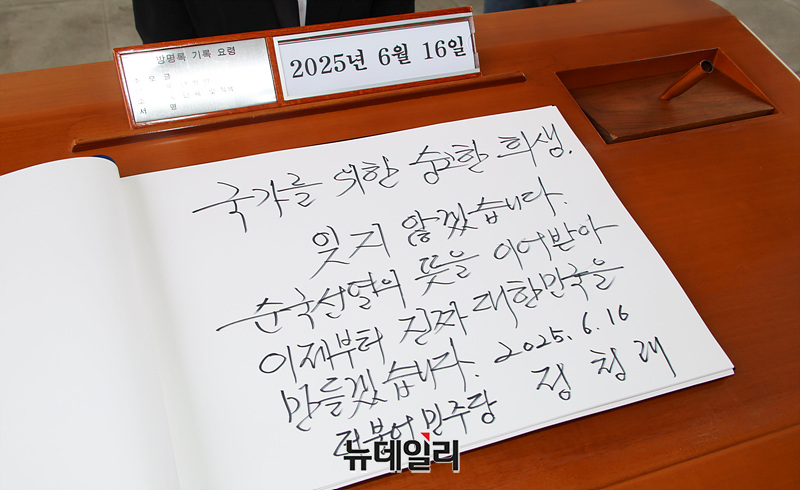 방명록 기록 요령
서 명
2025년 6월 16일
국가를 위한 숭고한 희생.
잊지 않겠습니다.
순국선열의 뜻을 이어받아
이제부터 진짜 대한민국을
만들겠습니다. 2025. 6. 16
더불어민주당 정청래
뉴데일리